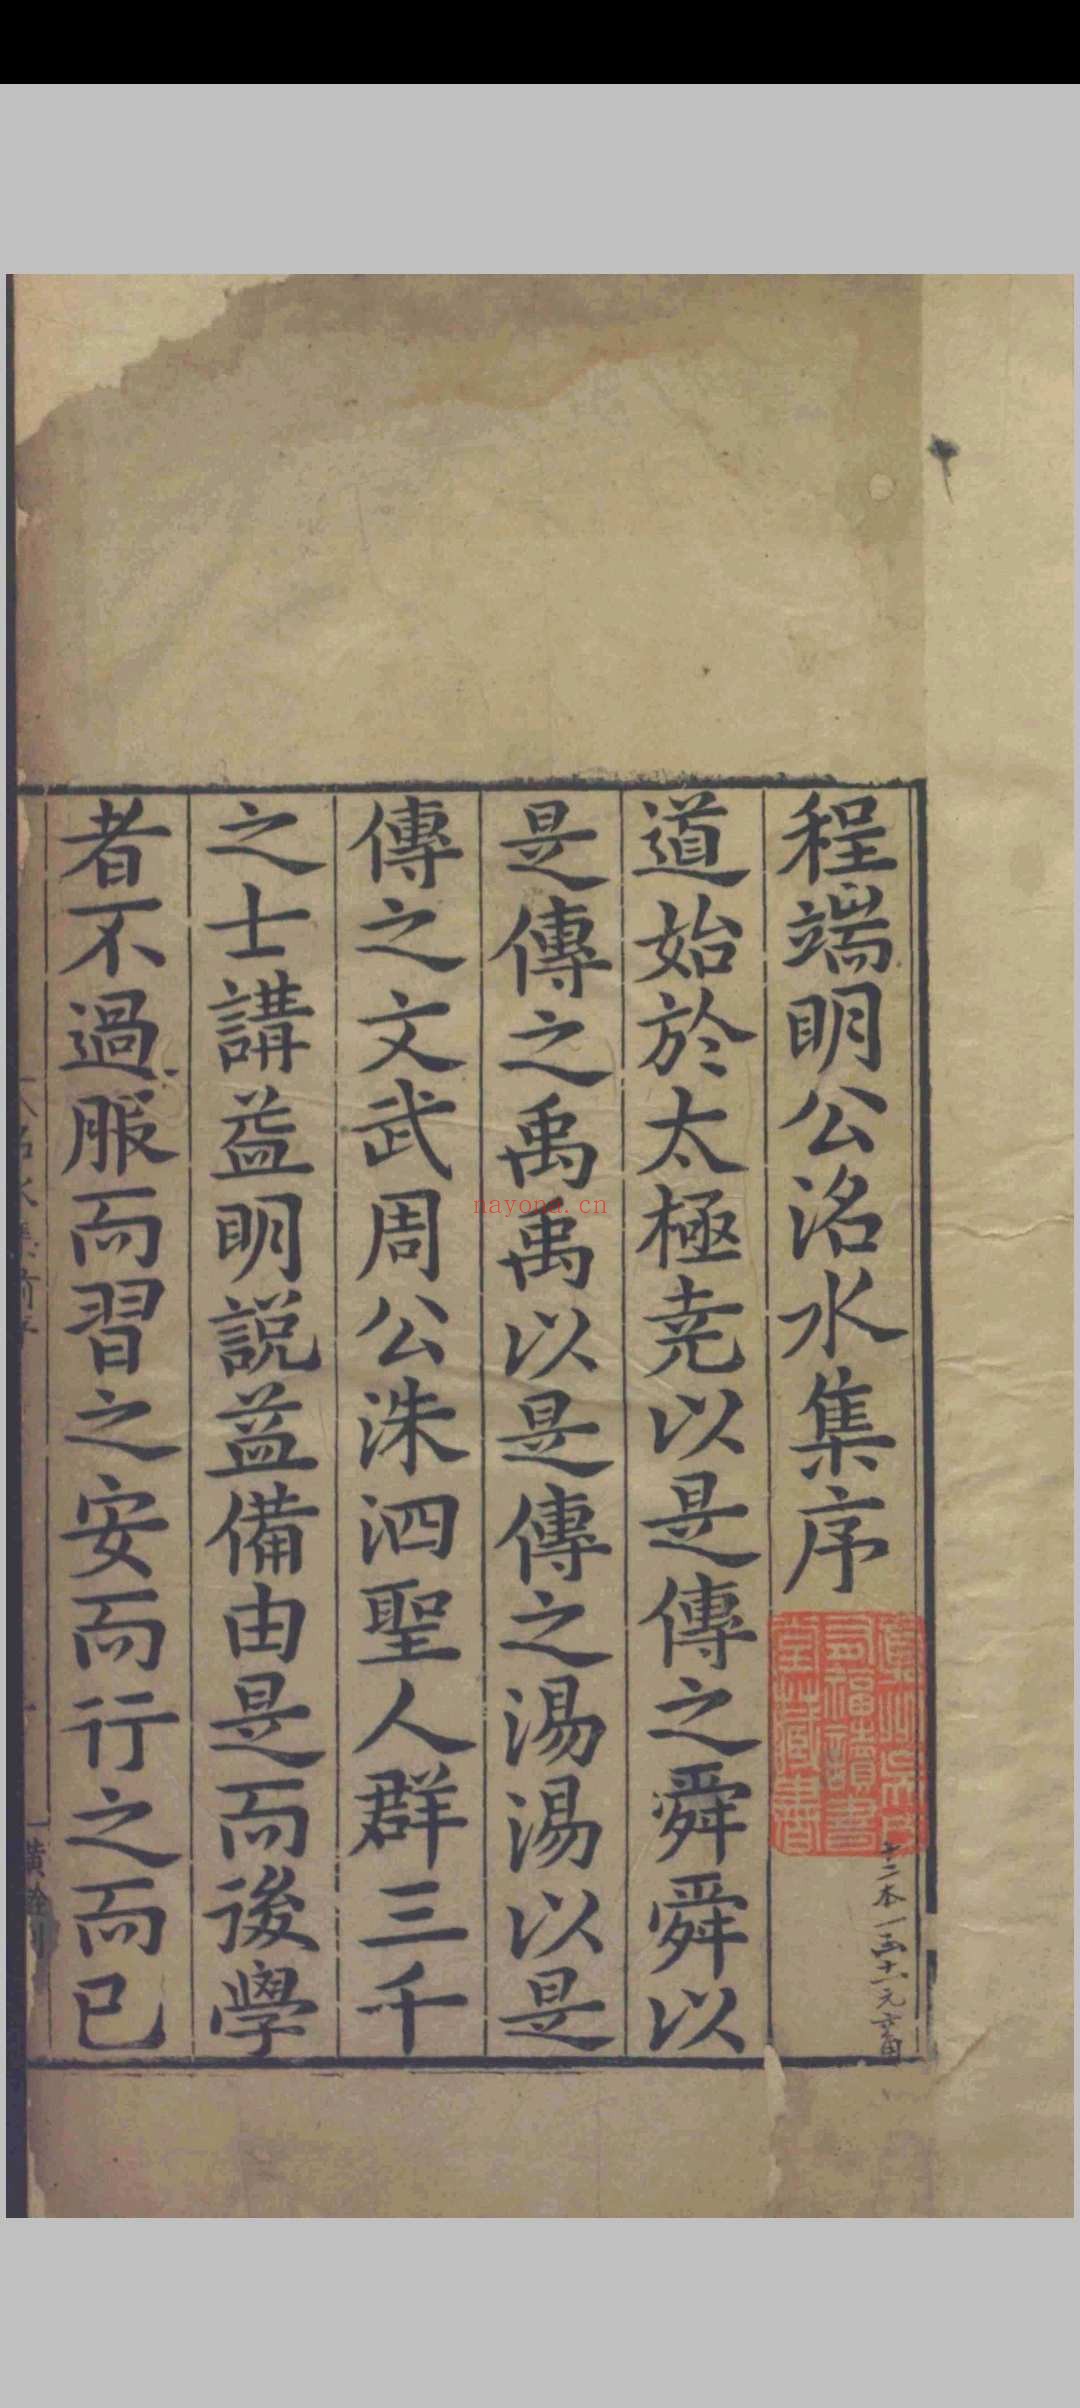 程端明公洺水集序
道始於太極尭以是傳之舜舜以
是傳之禹禹以是傳之湯湯以是
傳之文武周公洙泗聖人群三千
之士講益明説益備由是而後學
者不過服而習之安而行之而已
nayona.cn